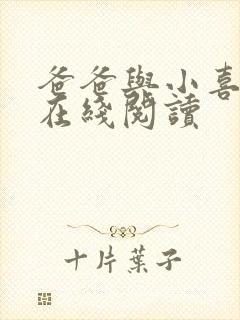 爸爸與小喜
在綫閱讀
十片葉子